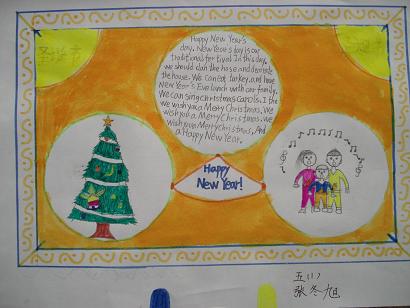 圣诞节
Happy New Year's
day. New Year's day is our
traditional fes tival. In this day,
we should clan the hose and decorate
the house. We can eat turkey, and have
New Year's Eve lunch with our family.
We can sing christmas carols. I the
we wish you a Merry Christmas. We
wish you a Merry Christmas. We
wish you a Merry Christmas, And
a Happy New Year.
Happy
New Year!
五(1)
张冬旭